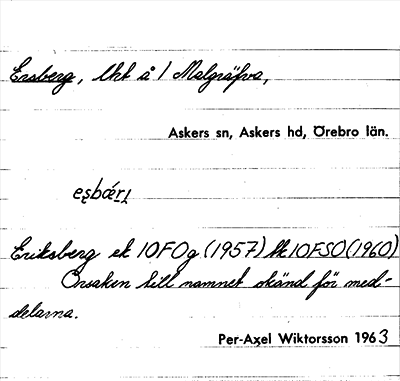 Ersberg, lht å 1 Malgräfva,
Askers sn, Askers hd, Örebro län.
esbǽrɪ
Eriksberg ek 10FOg (1957) tk 10FSO (1960)
Orsaken till namnet okänd för med-
delarna.
Per-Axel Wiktorsson 1963